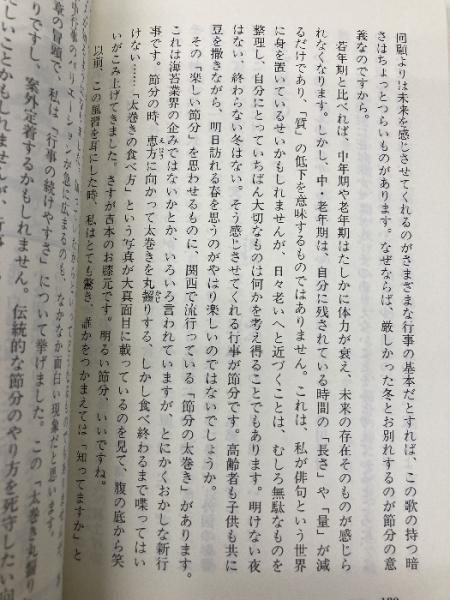 回顧よりは未来を感じさせてくれるのがさまざまな行事の基本だとすれば、この歌の持つ暗
さはちょっとつらいものがあります。なぜならば、厳しかった冬とお別れするのが節分の意
義なのですから。
若年期と比べれば、中年期や老年期はたしかに体力が衰え、未来の存在そのものが感じら
れなくなります。しかし、中・老年期は、自分に残されている時間の「長さ」や「量」が減
るだけであり、「質」の低下を意味するものではありません。これは、私が俳句という世界
に身を置いているせいかもしれませんが、日々老いへと近づくことは、むしろ無駄なものを
整理し、自分にとっていちばん大切なものは何かを考え得ることでもあります。明けない夜
はない、終わらない冬はない。そう感じさせてくれる行事が節分です。高齢者も子供も共に
豆を撒きながら、明日訪れる春を思うのがやはり楽しいのではないでしょうか。
その「楽しい節分」を思わせるものに、関西で流行っている「節分の太巻き」があります。
これは海苔業界の企みではないかとか、いろいろ言われていますが、とにかくおかしな新行
事です。節分の時、恵方に向かって太巻きを丸齧りする、しかし食べ終わるまで喋ってはい
けない……「太巻きの食べ方」という写真が大真面目に載っているのを見て、腹の底から笑
いがこみ上げてきました。さすが吉本のお膝元です。明るい節分、いいですね。
以前、この風習を耳にした時、私はとても驚き、誰かをつかまえては「知ってますか」と
ションが急に広まるのも、なかなか面白い現象だと思います。
章の冒頭で、私は「行事の続けやすさ」について挙げました。この「太巻き丸齧り
りですし、案外定着するかもしれません。伝統的な節分のやり方を死守したい向
しいことかもしれませんが